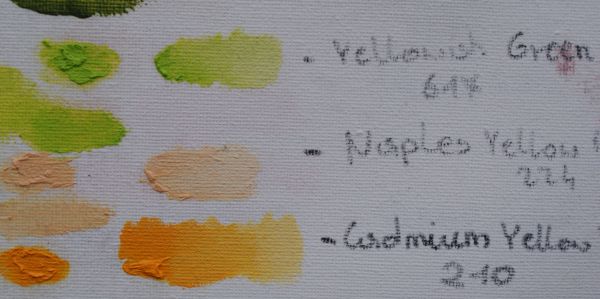 - Yellowish Green
617
- Naples Yellow
224
- Cadmium Yellow
210